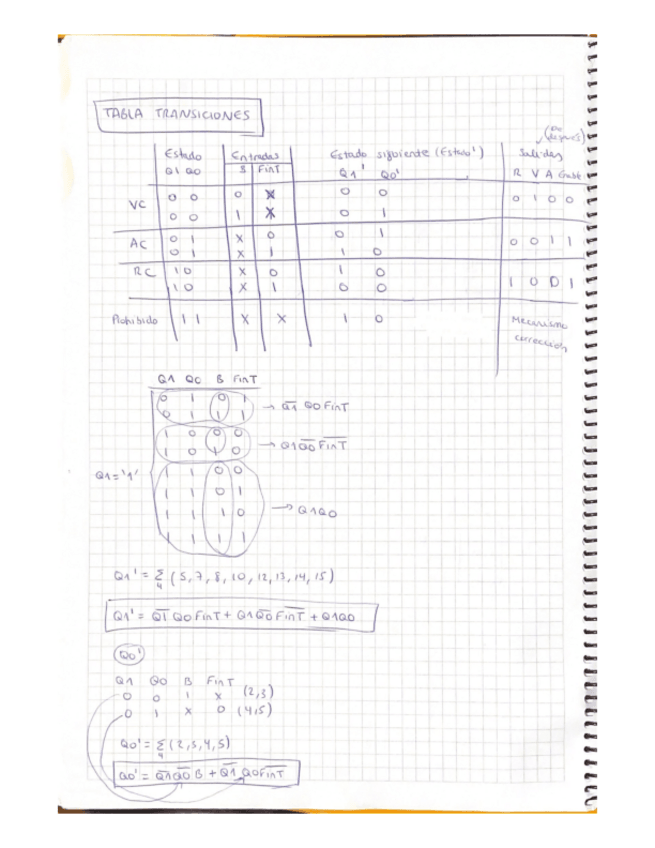 TABLA TRANSICIONES
(
después)
Estado Entradas Estado siguiente (Estado') Salidas
Q1 Q0 B FinT Q1' Q0' R V A
VC 0 0 0 X 0 0 0 1 0 0
0 0 1 X 0 1
AC 0 1 X 0 0 1 0 0 1 1
0 1 X 1 1 0
RC 1 0 X 0 1 0 1 0 0 1
1 0 X 1 0 0
Prohibido 1 1 X X 1 0 Mecanismo
corrección
Q1 Q0 B FinT
0 1 0 1
0 1 1 1 → Q̅1̅ Q0 FinT
1 0 0 0
1 0 1 0 → Q1 Q̅0̅ F̅i̅n̅T̅
Q1='1'
1 1 0 0
1 1 0 1
1 1 1 0 → Q1Q0
1 1 1 1
Q1' = Σ4 (5, 7, 8, 10, 12, 13, 14, 15)
Q1' = Q̅1̅ Q0 FinT + Q1 Q̅0̅ F̅i̅n̅T̅ + Q1Q0
Q0'
Q1 Q0 B FinT
0 0 1 X (2,3)
0 1 X 0 (4,5)
Q0' = Σ4 (2,3,4,5)
Q0' = Q̅1̅ Q̅0̅ B + Q̅1̅ Q0 F̅i̅n̅T̅